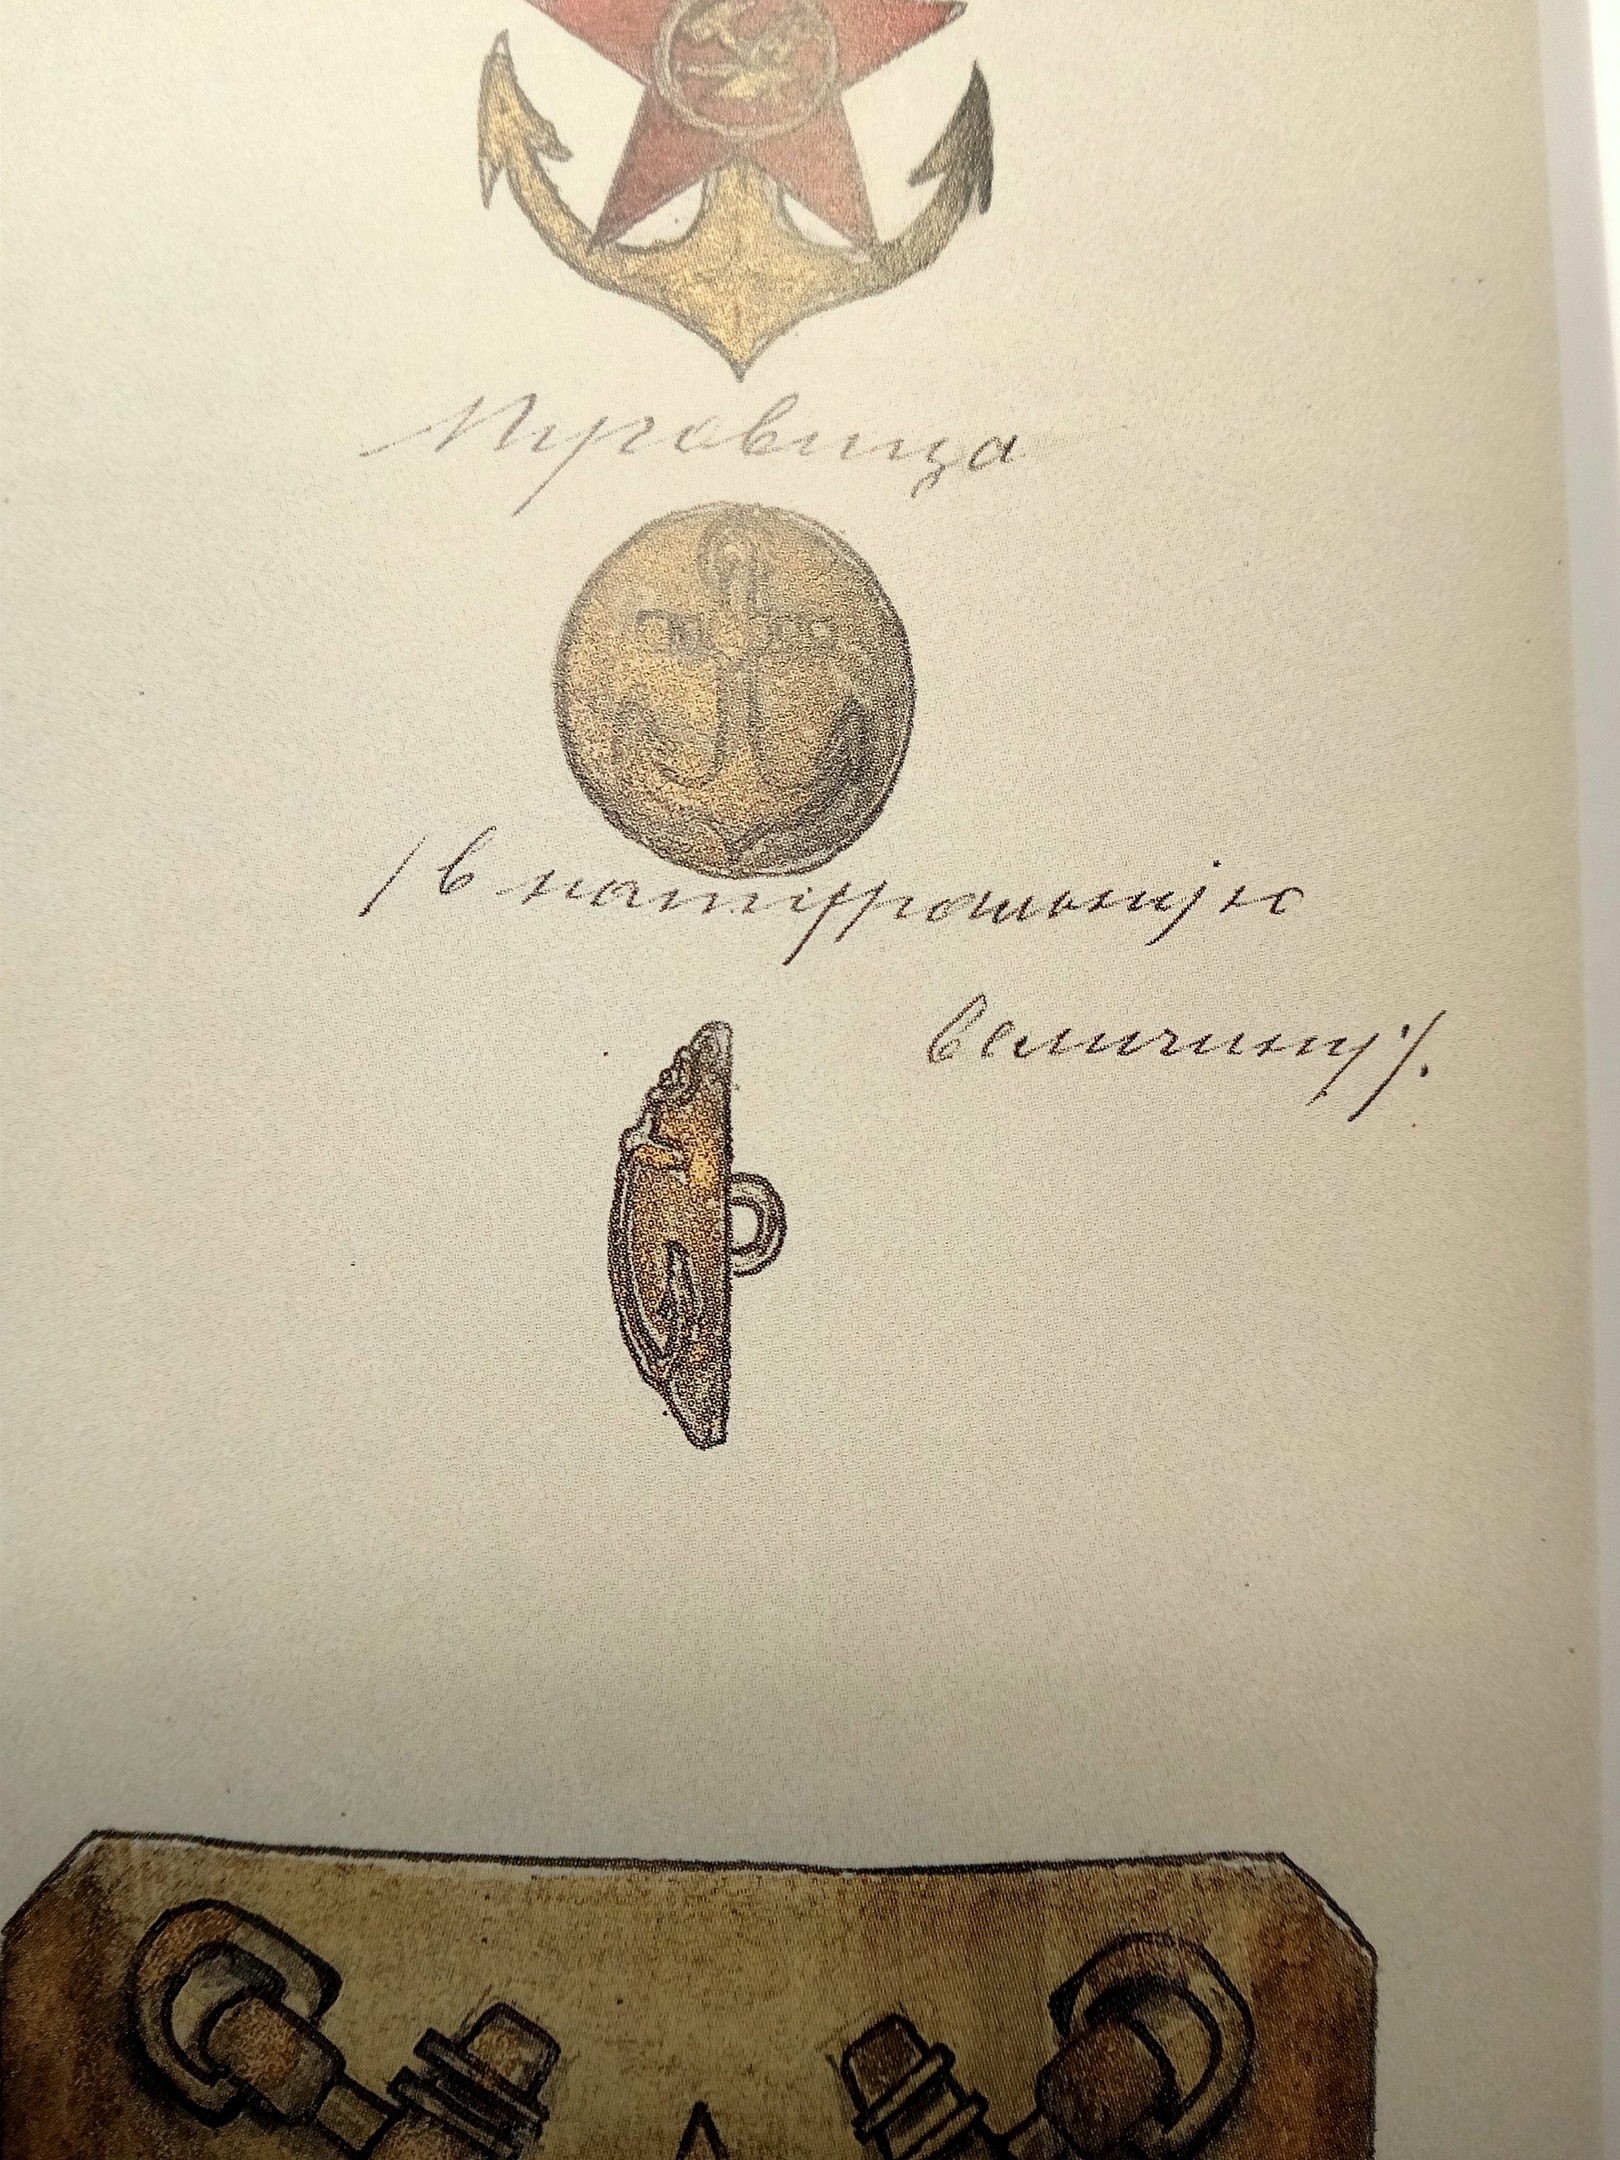 Пуговица
/в натуральную
величину/.